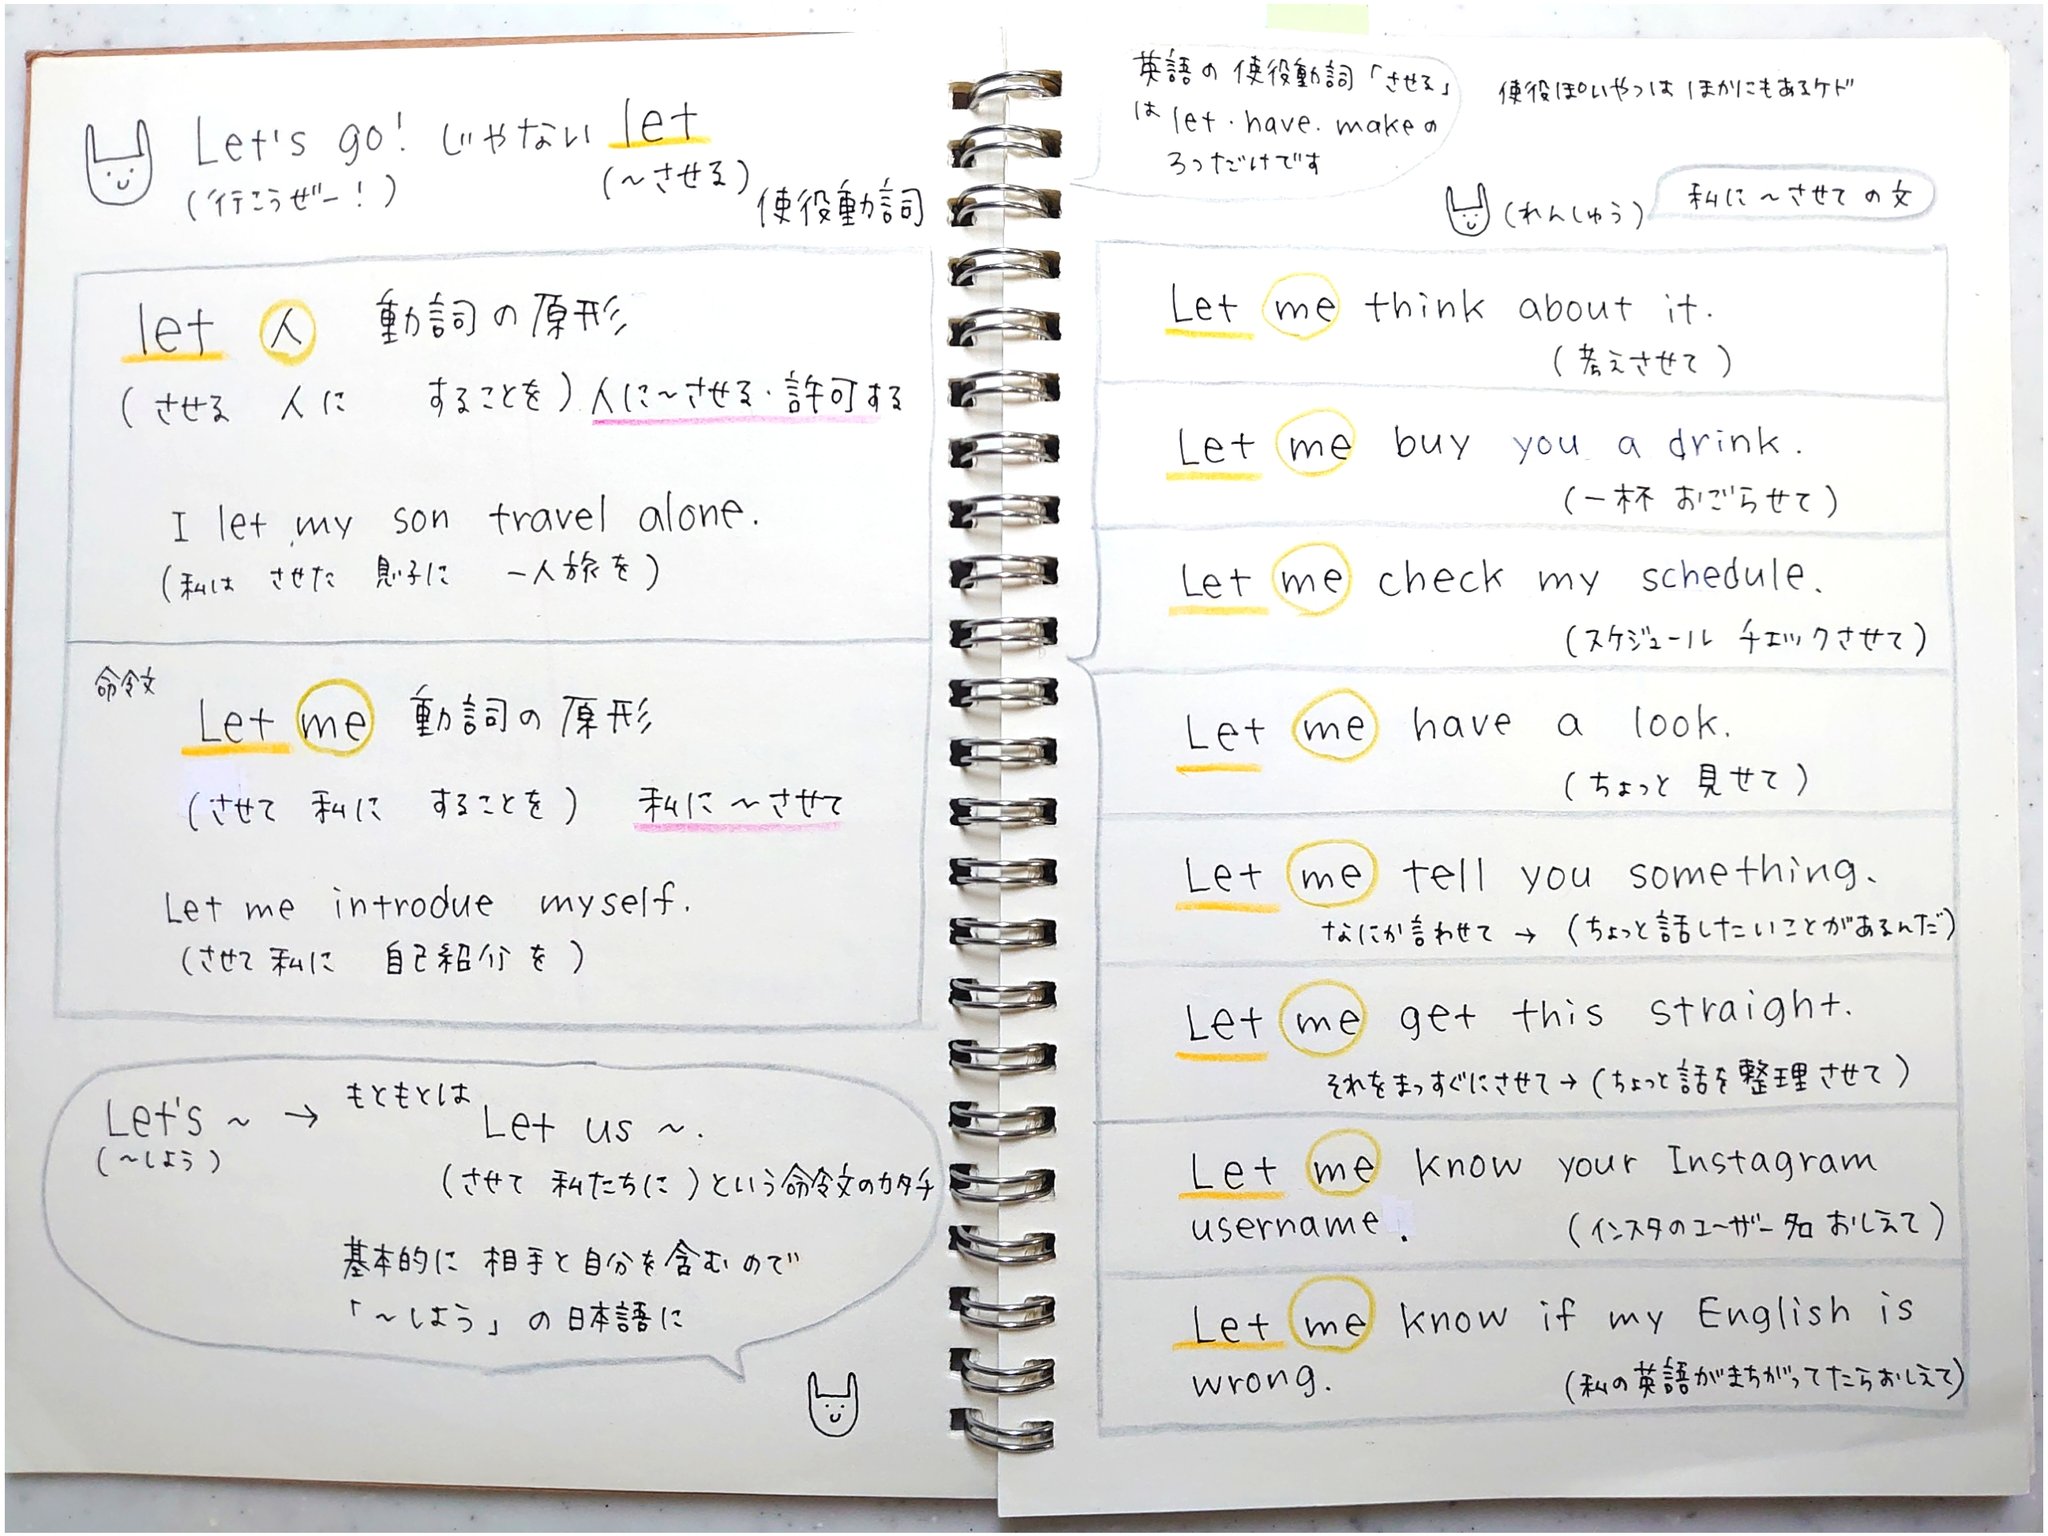 Let's go! じゃない let
(行こうぜー!) (〜させる) 使役動詞
let 人 動詞の原形
(させる 人に することを) 人に〜させる・許可する
I let my son travel alone.
(私は させた 息子に 一人旅を)
命令文
Let me 動詞の原形
(させて 私に することを) 私に〜させて
Let me introdue myself.
(させて私に 自己紹介を)
Let's 〜 → もともとは Let us 〜.
(〜しよう) (させて 私たちに)という命令文のカタチ
基本的に 相手と自分を含むので
「〜しよう」の日本語に
英語の使役動詞「させる」
は let・have・makeの
3つだけです
使役ぽいやつは ほかにもあるケド
(れんしゅう) 私に〜させての文
Let me think about it.
(考えさせて)
Let me buy you a drink.
(一杯 おごらせて)
Let me check my schedule.
(スケジュール チェックさせて)
Let me have a look.
(ちょっと 見せて)
Let me tell you something.
なにか言わせて → (ちょっと話したいことがあるんだ)
Let me get this straight.
それをまっすぐにさせて → (ちょっと話を整理させて)
Let me know your Instagram
username. (インスタのユーザー名 おしえて)
Let me know if my English is
wrong. (私の英語がまちがってたらおしえて)